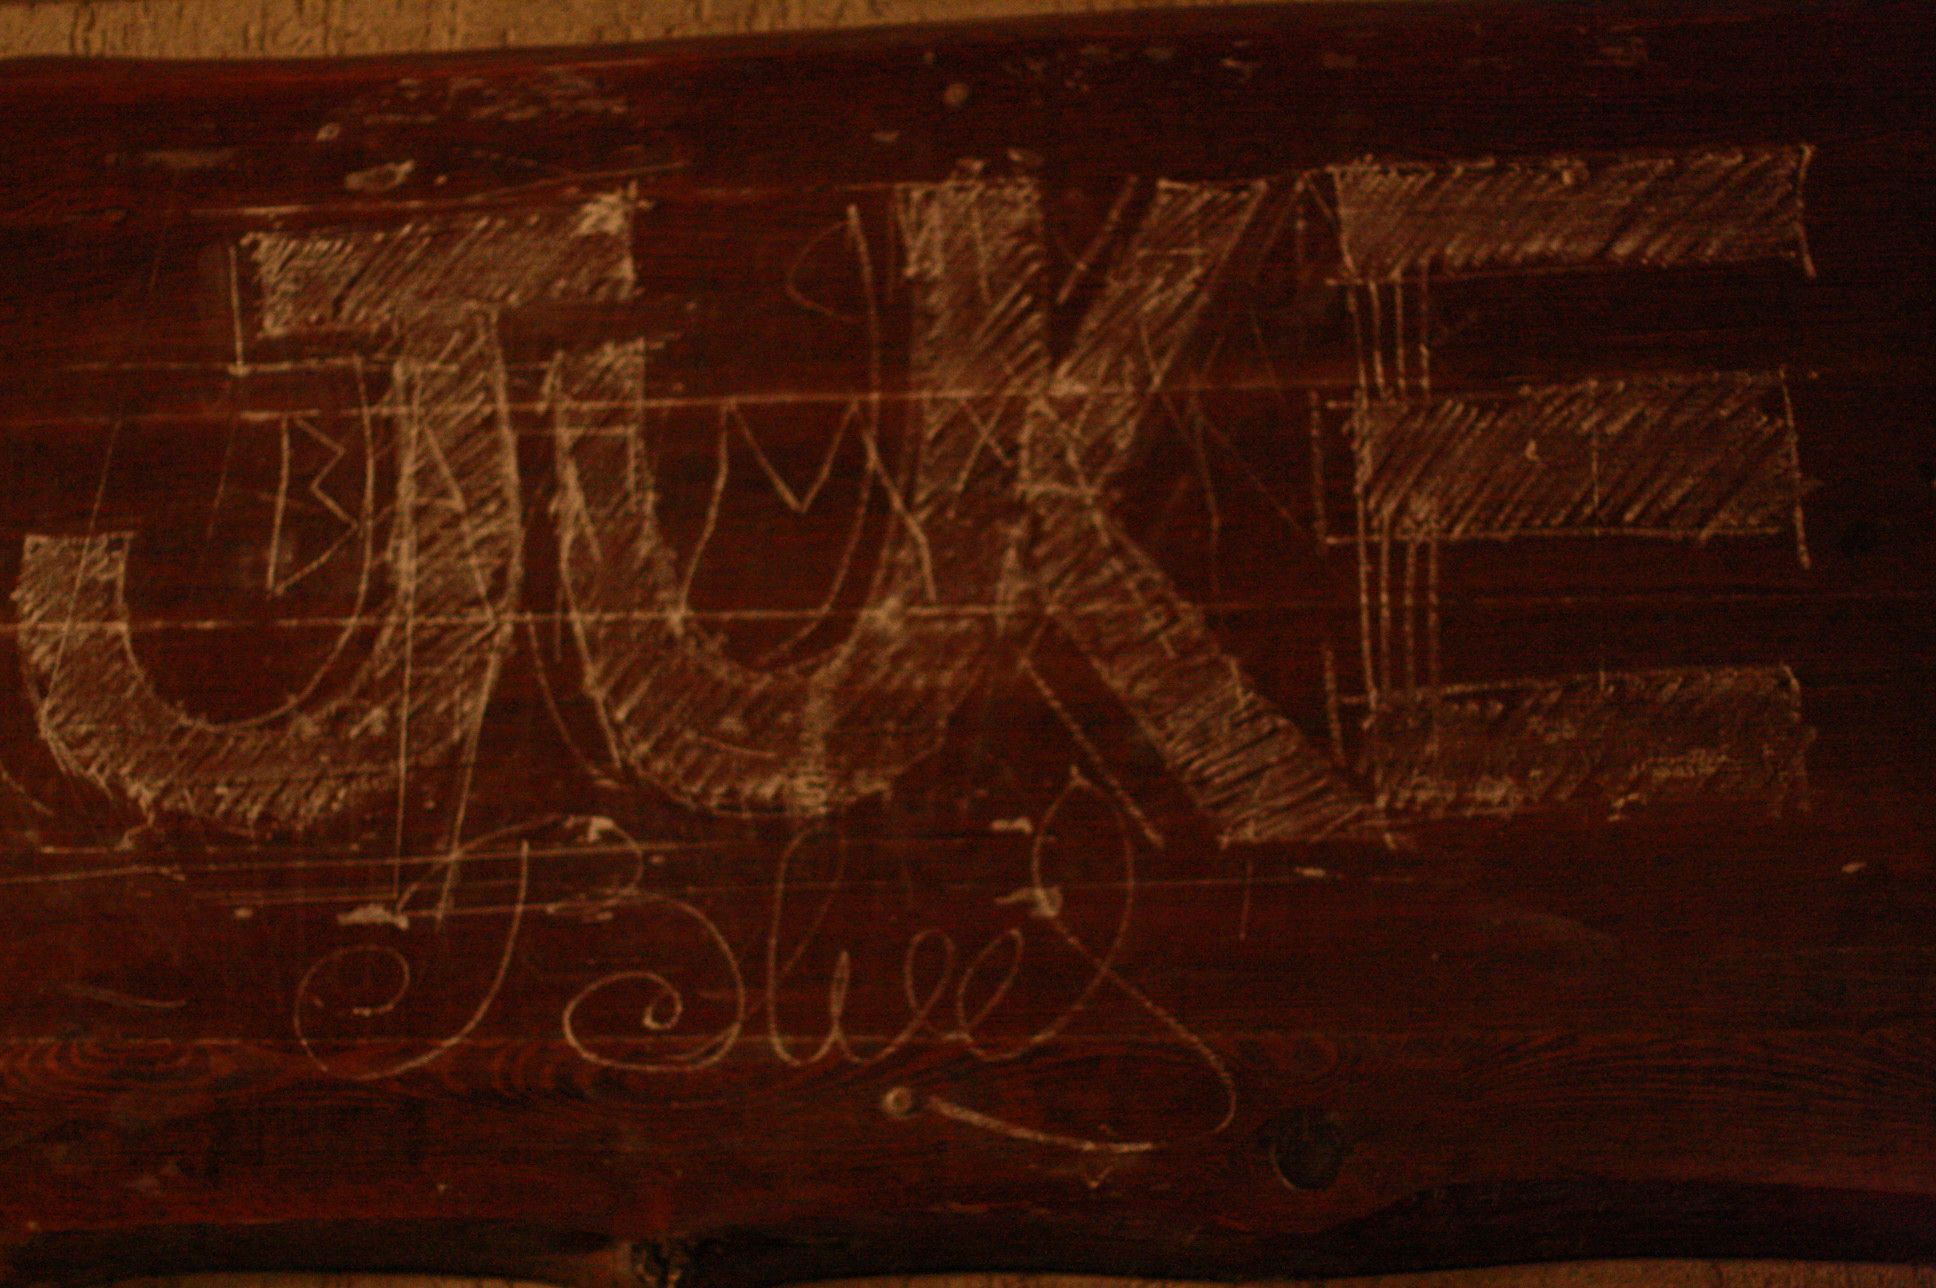 JUKE
Blues